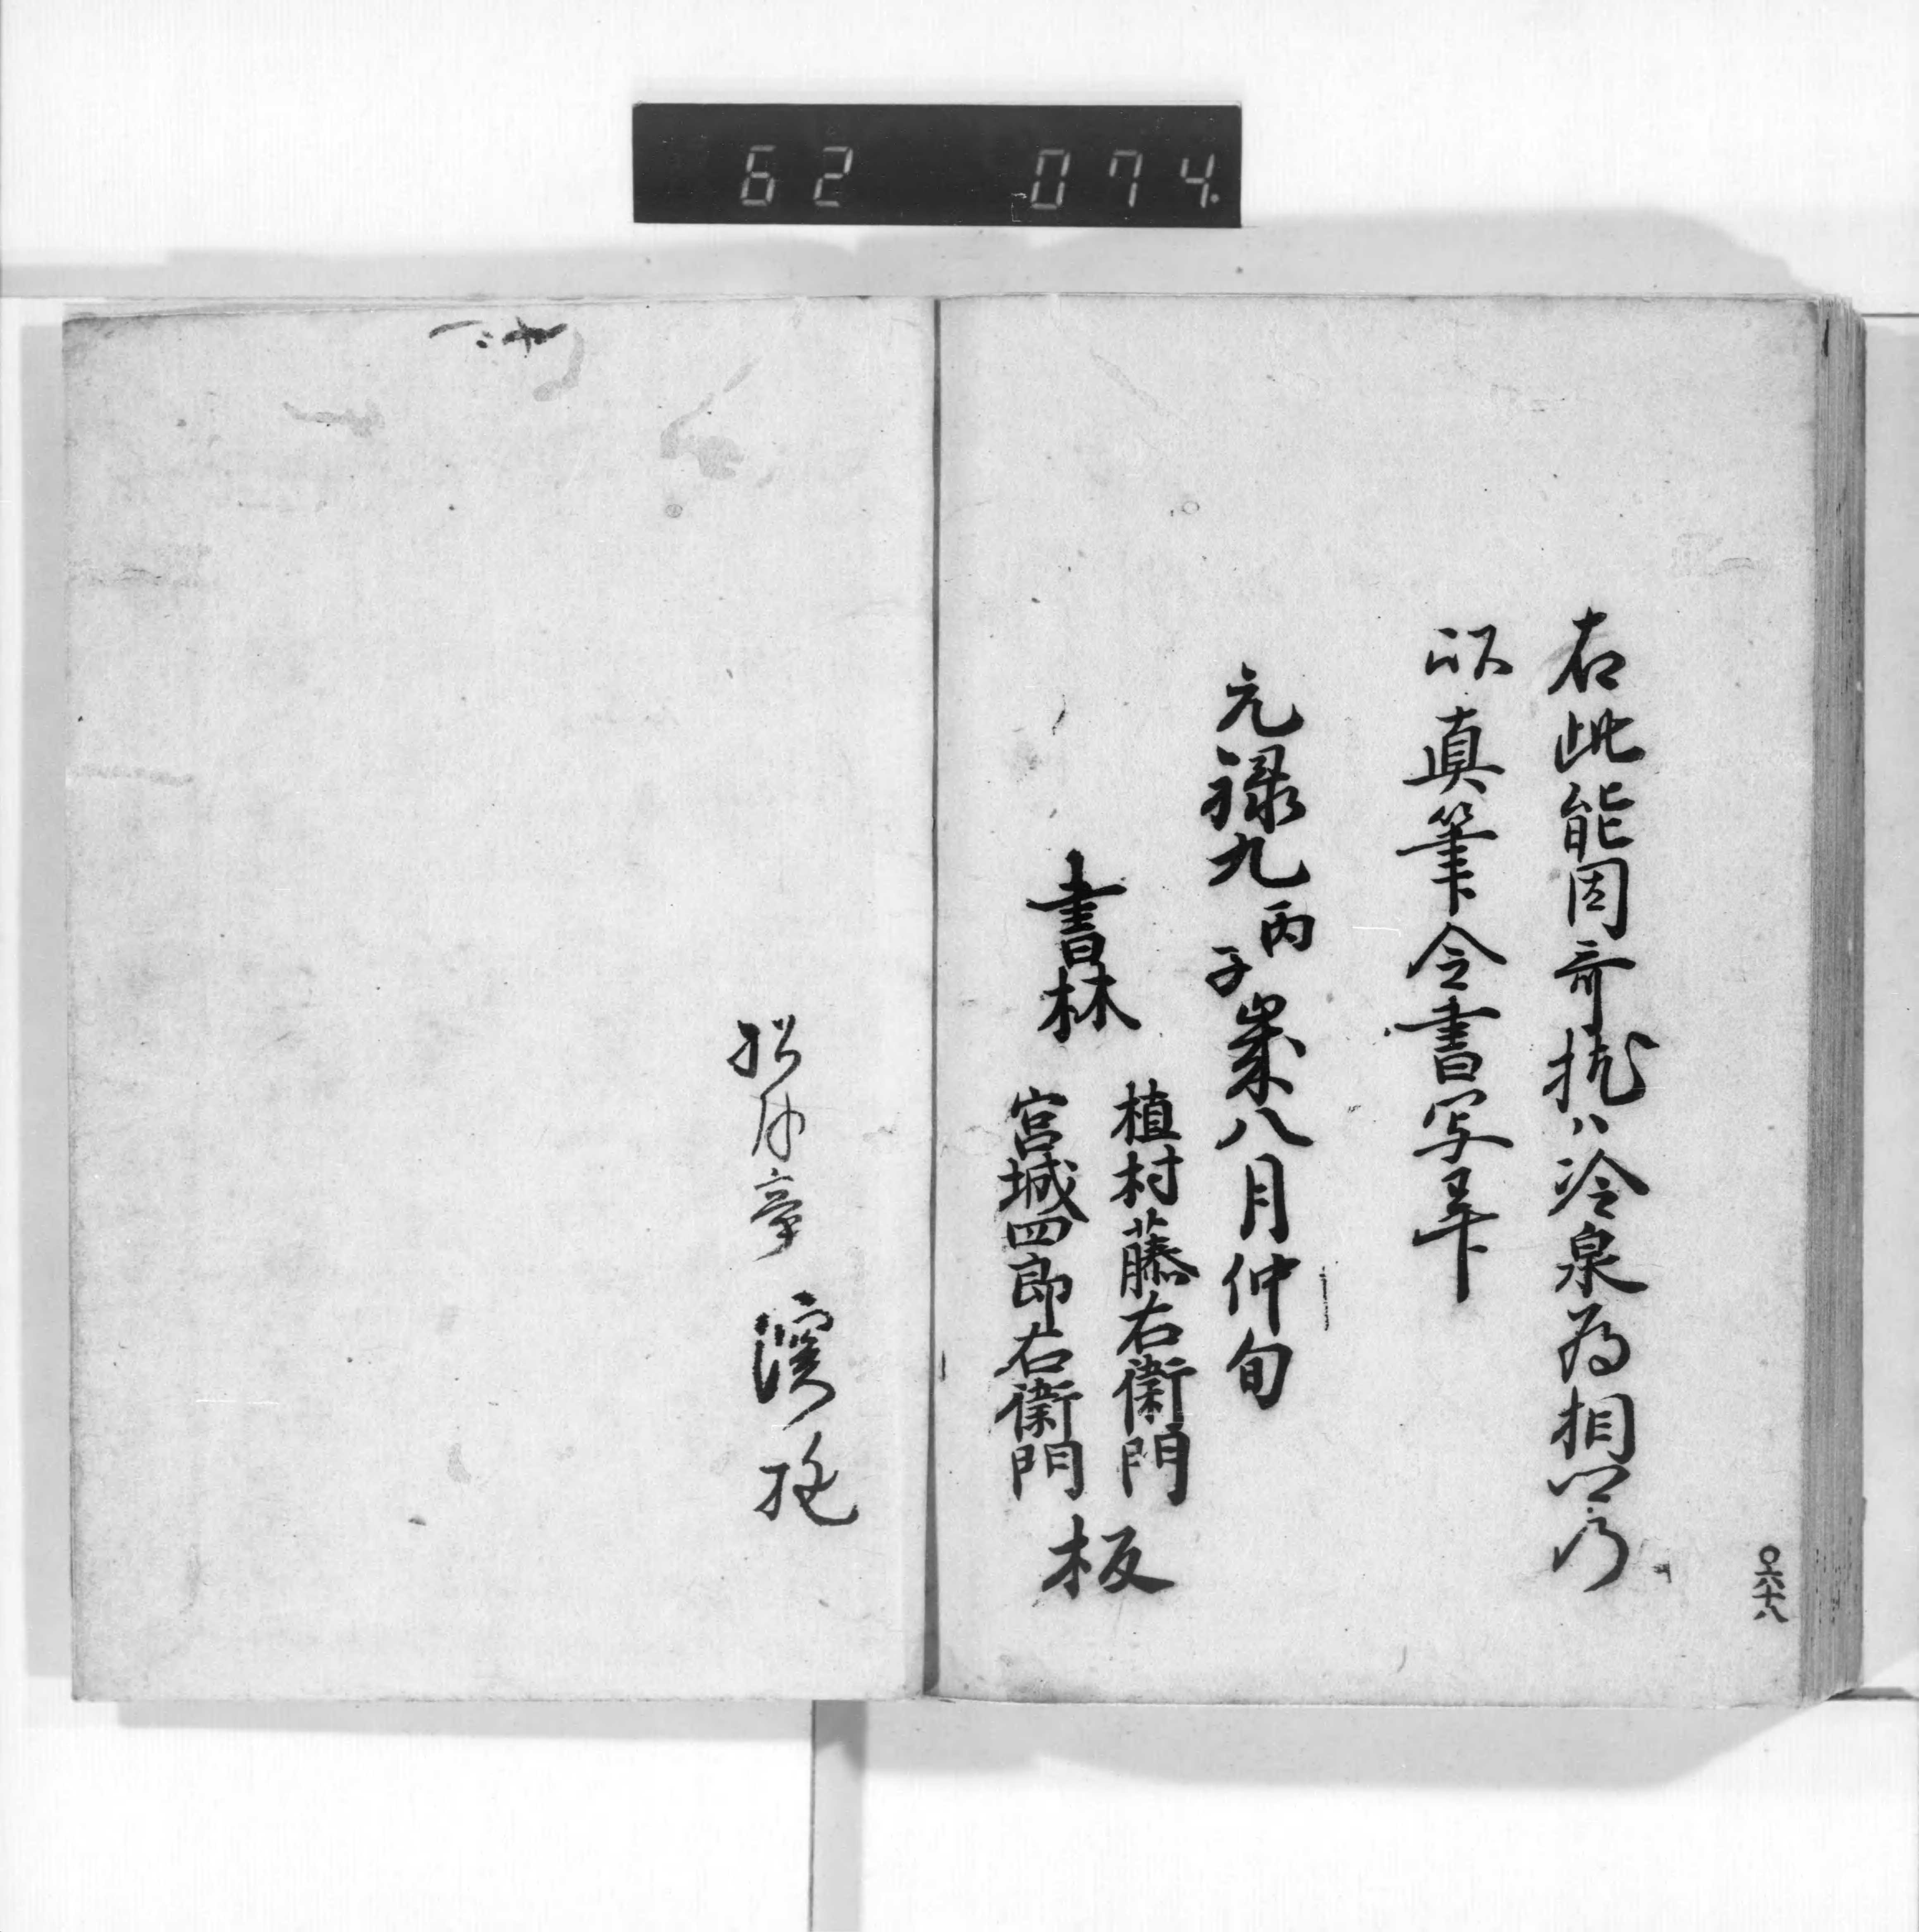 62 074
右此能因哥枕ハ冷泉為相公乃
以真筆令書写畢
元禄九丙子歳八月仲旬
書林
植村藤右衛門
宮城四郎右衛門
板
〇六十八
松月亭